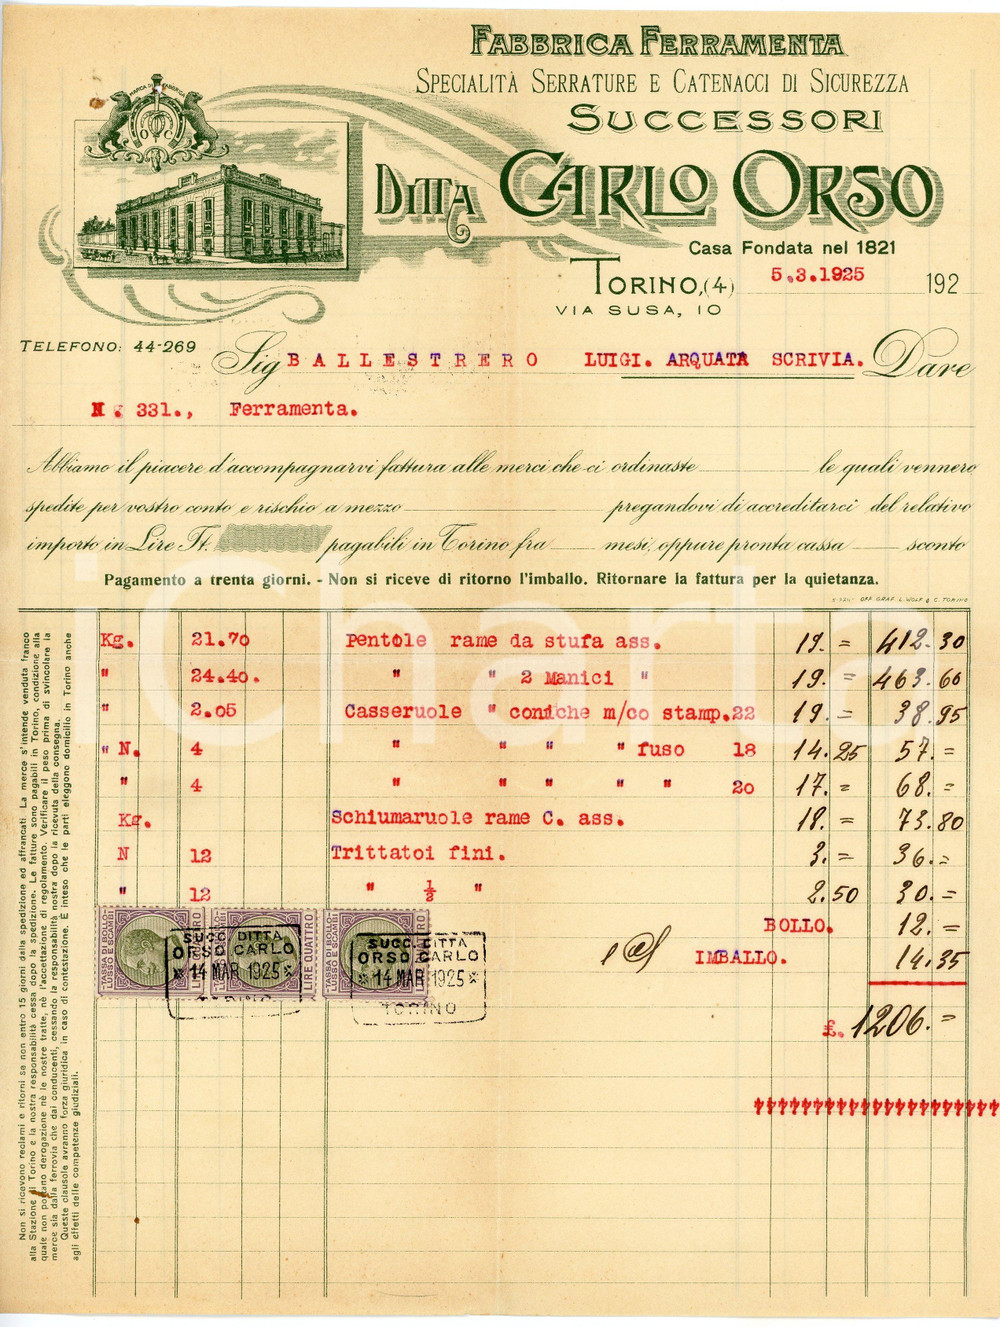 FABBRICA FERRAMENTA
SPECIALITÀ SERRATURE E CATENACCI DI SICUREZZA
SUCCESSORI
DITTA CARLO ORSO
Casa Fondata nel 1821
MARCA DI FABBRICA
TORINO,(4) 5.3.1925 192
VIA SUSA, 10
TELEFONO: 44-269
Sig BALLESTRERO LUIGI. ARQUATA SCRIVIA. Dare
N. 331., Ferramenta.
Abbiamo il piacere d'accompagnarvi fattura alle merci che ci ordinaste le quali vennero
spedite per vostro conto e rischio a mezzo pregandovi di accreditarci del relativo
importo in Lire It. pagabili in Torino fra mesi, oppure pronta cassa sconto
Pagamento a trenta giorni. - Non si riceve di ritorno l'imballo. Ritornare la fattura per la quietanza.
OFF. GRAF. L. WOLF & C. TORINO
Kg. 21.70 Pentole rame da stufa ass. 19. = 412.30
" 24.40. " " 2 Manici " 19. = 463.60
" 2.05 Casseruole " coniche m/co stamp.22 19. = 38.95
" N. 4 " " " " fuso 18 14.25 57.=
" 4 " " " " " 20 17.= 68.=
Kg. Schiumaruole rame C. ass. 18. = 73.80
N 12 Trittatoi fini. 3.= 36.=
" 12 " ½ " 2.50 30.=
BOLLO. 12.=
IMBALLO. 14.35
£. 1206.=
TASSA DI BOLLO LUSSO E SCAMBI
LIRE QUATTRO
TASSA DI BOLLO LUSSO E SCAMBI
LIRE QUATTRO
TASSA DI BOLLO LUSSO E SCAMBI
LIRE QUATTRO
SUCC. DITTA
ORSO CARLO
* 14 MAR 1925 *
TORINO
SUCC. DITTA
ORSO CARLO
* 14 MAR 1925 *
TORINO
Non si ricevono reclami e ritorni se non entro 15 giorni della spedizione ed affrancati. La merce s'intende venduta franco
alla Stazione di Torino e la nostra responsabilità cessa dopo la spedizione. Le fatture sono pagabili in Torino, condizione alla
quale non portano derogazione nè le nostre tratte, nè l'accettazione di regolamento. Verificare il peso prima di svincolare la
merce sia dalla ferrovia che dai conducenti, cessando la responsabilità nostra dopo la ricevuta della consegna.
Queste clausole avranno forza giuridica in caso di contestazione. È inteso che le parti eleggono domicilio in Torino anche
agli effetti delle competenze giudiziali.
iCharta